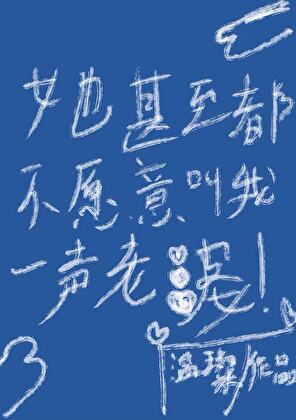 她甚至都
不愿意叫我
一声老婆！
温作品